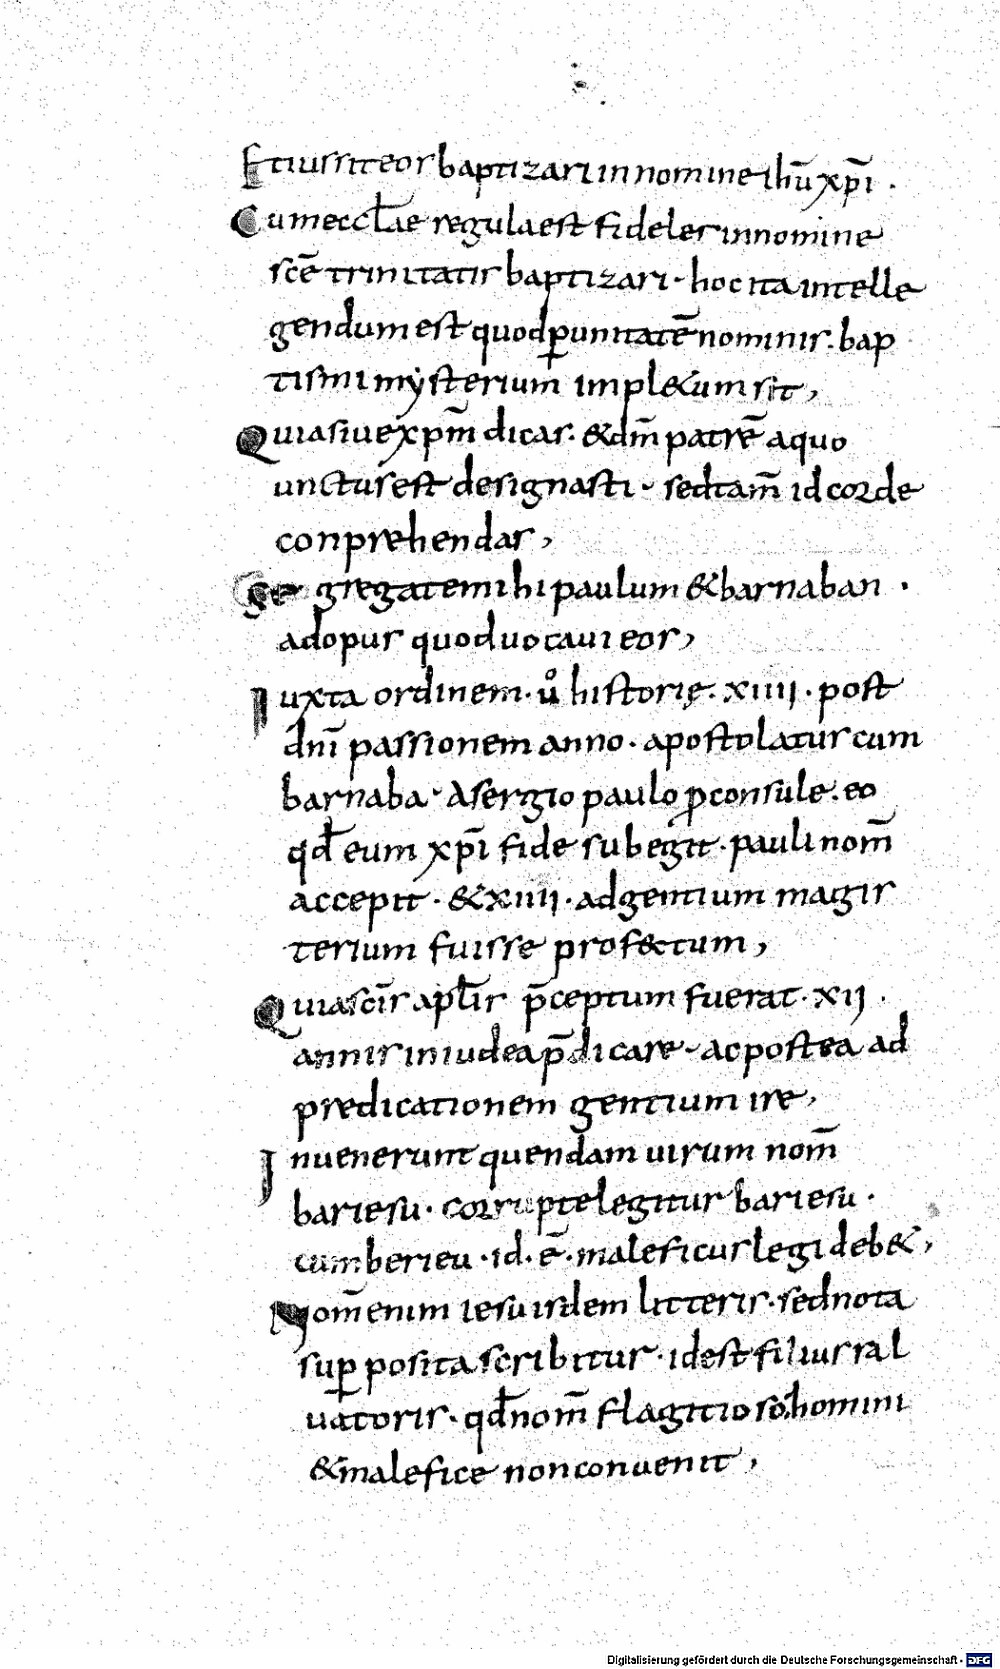 Et iussit eos baptizari in nomine ihū xp̄i ·
Cum eccƚae regula est fideles in nomine
scē trinitatis baptizari · hoc ita intelle
gendum est quod ꝑ unitatē nominis · bap
tismi mysterium impl&um sit ,
Quia siue xp̄m dicas · & dm̄ patrē a quo
unctus est designasti · sed tam̄ id corde
conprehendas ,
Segregate mihi paulum & barnaban ·
ad opus quod uocaui eos ,
Iuxta ordinem · uº historię · xiiii · post
dnī passionem anno · apostolatus cum
barnaba · A sergio paulo ꝓconsule · eo
qđ eum xp̄i fide subegit · pauli nom̄
accepit · & xiiii · ad gentium magis
terium fuisse prof&tum ,
Quia scīs apƚis p̄ceptum fuerat · xii ·
annis in iudea p̄dicare · ac postea ad
predicationem gentium ire ,
Inuenerunt quendam uirum nom̄
bariesu · corrupte legitur bariesu ·
cum berieu · id · ē · maleficus legi deb& ,
Nom̄ enim iesu isdem litteris · sed nota
suꝑ posita scribitur · id est filius sal
uatoris · qđ nom̄ flagitioso homini
& malefice non conuenit ,
Digitalisierung gefördert durch die Deutsche Forschungsgemeinschaft - DFG